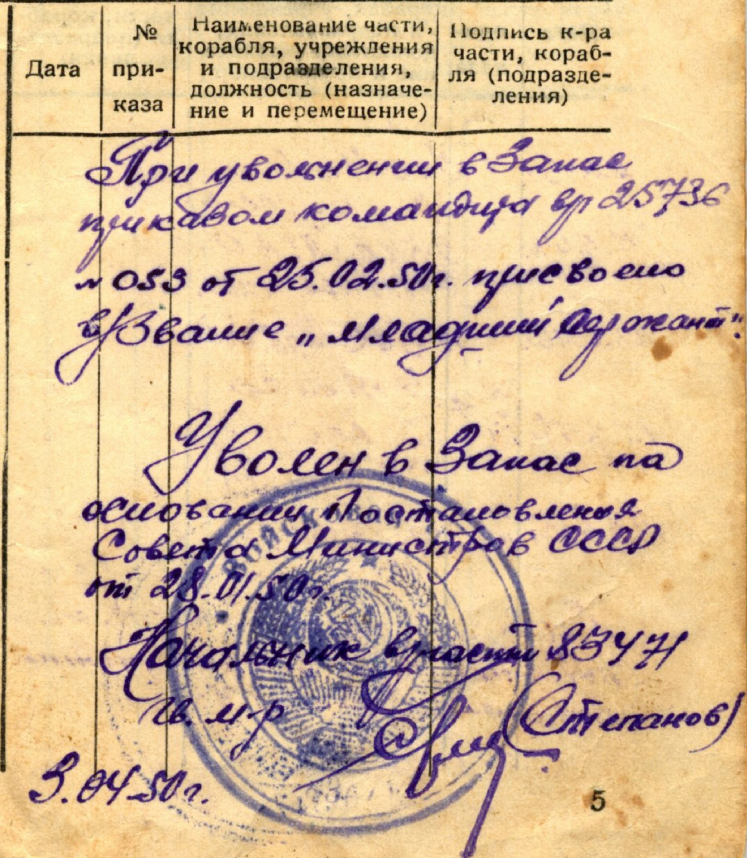 Дата
№ при-каза
Наименование части, корабля, учреждения и подразделения, должность (назначе-ние и перемещение)
Подпись к-ра части, кораб-ля (подразде-ления)
При увольнении в Запас
приказом командира в/ч 25736
№ 053 от 25.02.50г. присвоено
в/звание „Младший Сержант".
Уволен в Запас на
основании Постановления
Совета Министров СССР
от 28.01.50г.
Начальник в/части 83471
гв. м-р (Степанов)
3.04.50г.
5